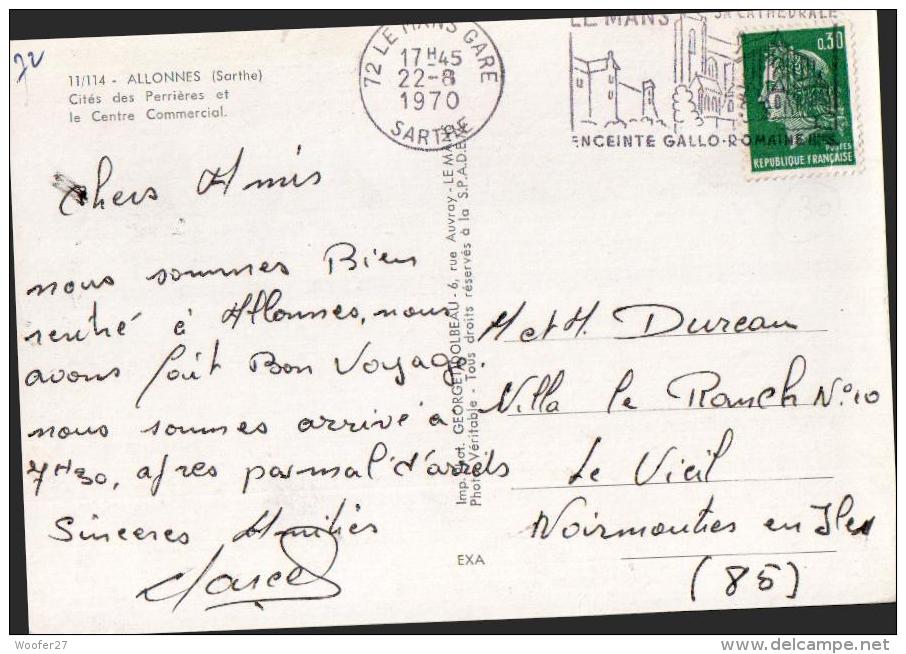 72
11/114 - ALLONNES (Sarthe)
Cités des Perrières et
le Centre Commercial.
72 LE MANS GARE
17H45
22-8
1970
SARTHE
LE MANS
SA CATHEDRALE
ENCEINTE GALLO-ROMAINE
0,30
POSTES
REPUBLIQUE FRANÇAISE
Chers Amis
nous sommes Bien
rentré à Allonnes, nous
avons fait Bon Voyage.
nous sommes arrivé à
7H30, apres pas mal d'arrets
Sinceres Amitiés
Marcel
Imp. Phot. GEORGET-DOLBEAU - 6, rue Auvray - LE MANS
Photo Véritable - Tous droits réservés à la S.P.A.D.E.M.
EXA
M et M. Dureau
Villa le Ranch No 10
Le Vieil
Noirmoutier en Ile
(85)
30
Woofer27
www.delcampe.net